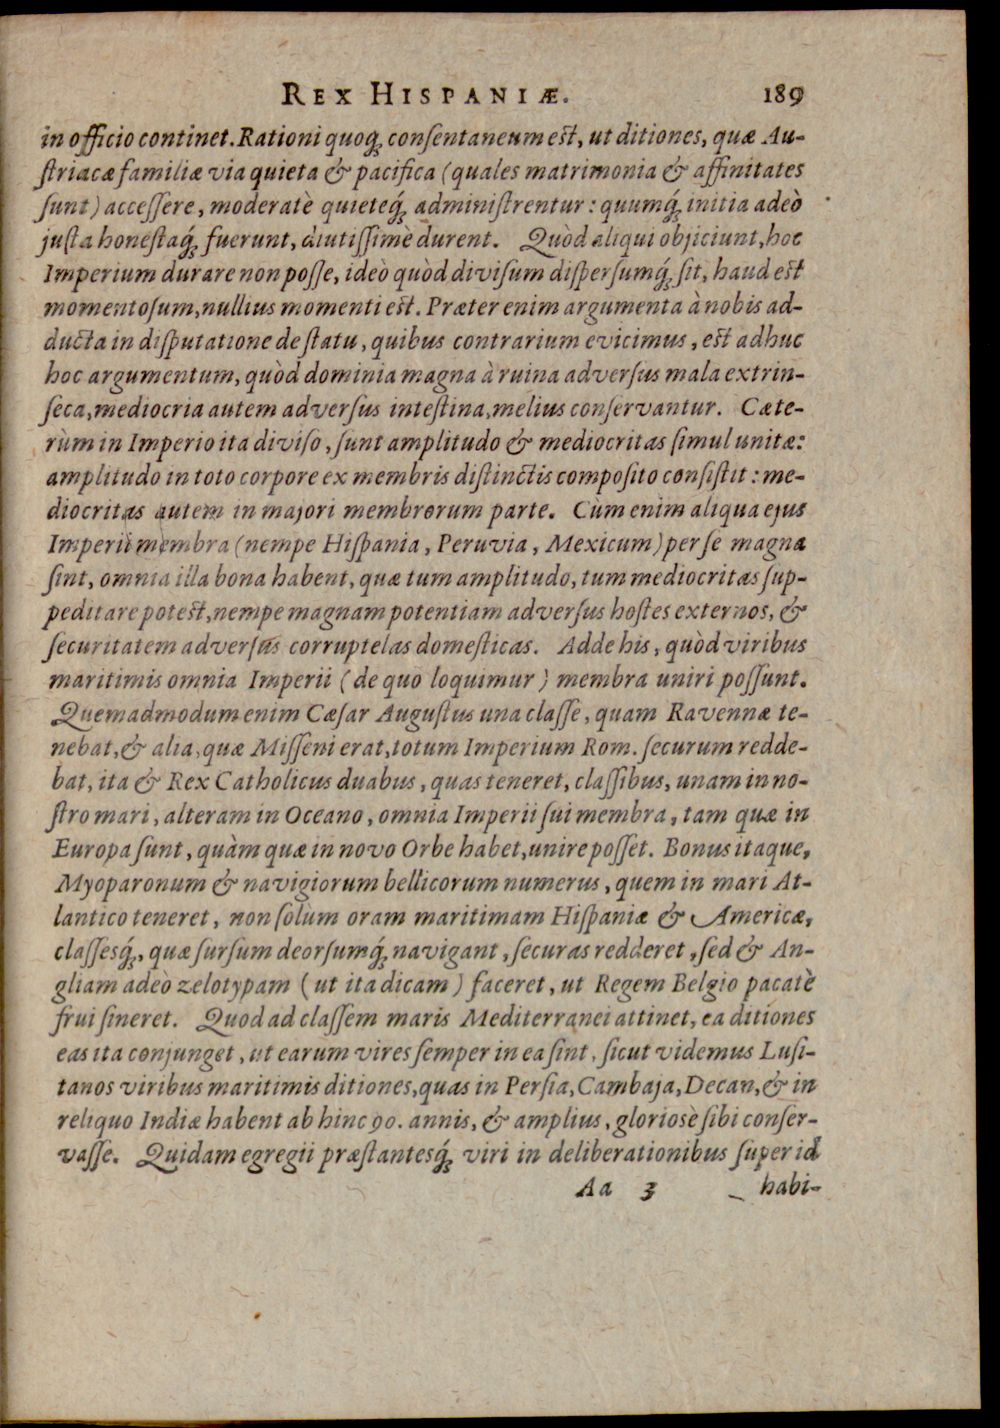 REX HISPANIÆ. 189
in officio continet. Rationi quoqꝫ consentaneum est, ut ditiones, quæ Au-
ſtriacæ familiæ via quieta & pacifica (quales matrimonia & affinitates
ſunt) acceſſere, moderatè quieteq́ꝫ adminiſtrentur: quumq́ꝫ initia adeò
juſta honeſtaq́ꝫ fuerunt, diutiſſimè durent. Quòd aliqui objiciunt, hoc
Imperium durare non poſſe, ideò quòd diviſum diſperſumq́ꝫ ſit, haud eſt
momentoſum, nullius momenti eſt. Præter enim argumenta à nobis ad-
ducta in diſputatione de ſtatu, quibus contrarium evicimus, eſt adhuc
hoc argumentum, quòd dominia magna à ruina adverſus mala extrin-
ſeca, mediocria autem adverſus inteſtina, melius conſervantur. Cæte-
rùm in Imperio ita diviſo, ſunt amplitudo & mediocritas ſimul unitæ:
amplitudo in toto corpore ex membris diſtinctis compoſito conſiſtit: me-
diocritas autem in majori membrorum parte. Cùm enim aliqua ejus
Imperii membra (nempe Hiſpania, Peruvia, Mexicum) per ſe magna
ſint, omnia illa bona habent, quæ tum amplitudo, tum mediocritas ſup-
peditare poteſt, nempe magnam potentiam adverſus hoſtes externos, &
ſecuritatem adverſus corruptelas domeſticas. Adde his, quòd viribus
maritimis omnia Imperii (de quò loquimur) membra uniri poſſunt.
Quemadmodum enim Cæſar Auguſtus una claſſe, quam Ravennæ te-
nebat, & alia, quæ Miſſeni erat, totum Imperium Rom. ſecurum redde-
bat, ita & Rex Catholicus duabus, quas teneret, claſſibus, unam in no-
ſtro mari, alteram in Oceano, omnia Imperii ſui membra, tam quæ in
Europa ſunt, quàm quæ in novo Orbe habet, unire poſſet. Bonus itaque,
Myoparonum & navigiorum bellicorum numerus, quem in mari At-
lantico teneret, non ſolùm oram maritimam Hiſpaniæ & Americæ,
claſſesq́ꝫ, quæ ſurſum deorſumq́ꝫ navigant, ſecuras redderet, ſed & An-
gliam adeò zelotypam (ut ita dicam) faceret, ut Regem Belgio pacatè
frui ſineret. Quod ad claſſem maris Mediterranei attinet, ea ditiones
eas ita conjunget, ut earum vires ſemper in ea ſint, ſicut videmus Luſi-
tanos viribus maritimis ditiones, quas in Perſia, Cambaja, Decan, & in
reliquo Indiæ habent ab hinc 90. annis, & amplius, glorioſè ſibi conſer-
vaſſe. Quidam egregii præſtantesq́ꝫ viri in deliberationibus ſuper id
Aa 3 habi-